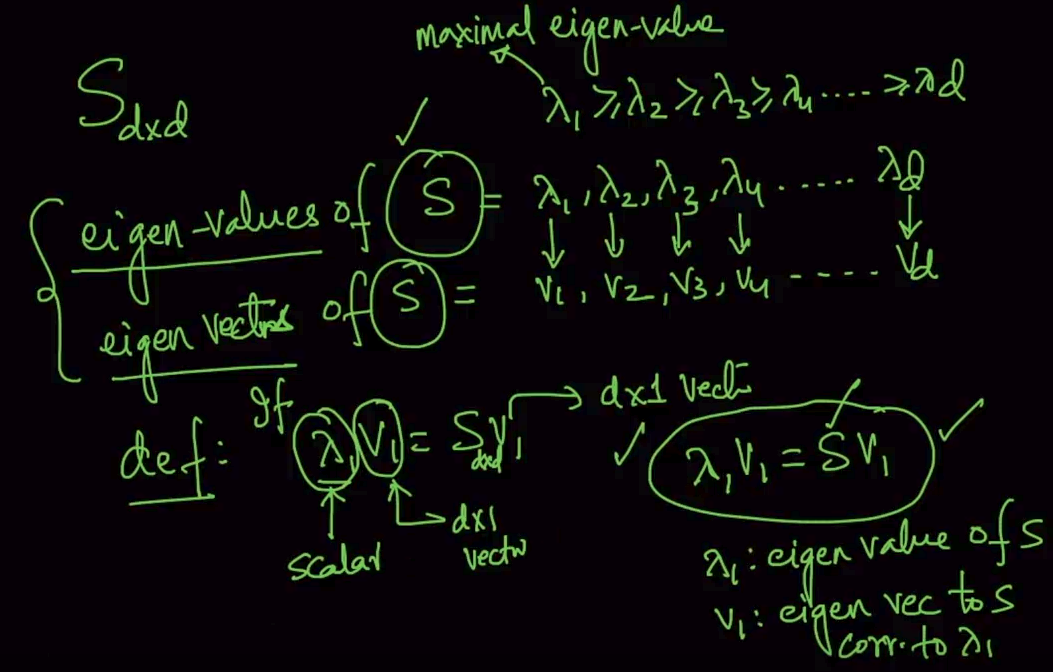 maximal eigen-value
S dxd
λ1 ≥ λ2 ≥ λ3 ≥ λ4 .... ≥ λd
eigen-values of S = λ1, λ2, λ3, λ4 ...... λd
eigen vectors of S = v1, v2, v3, v4 ------ vd
def: If λ1 v1 = S dxd v1 → dx1 vect
λ1 v1 = S v1
scalar
dx1
vector
λ1: eigen value of S
v1: eigen vec to S
corr. to λ1